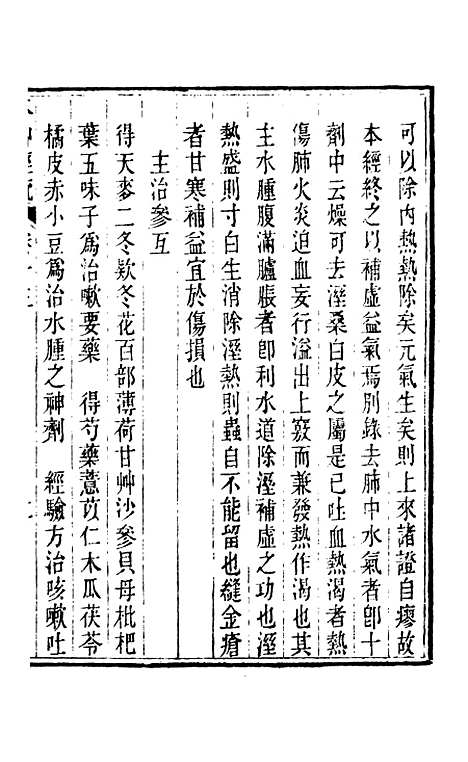 可以除內熱熱除矣元氣生矣則上來諸證自瘳故
本經終之以補虛益氣焉別錄去肺中水氣者卽十
劑中云燥可去溼桑白皮之屬是已吐血熱渴者熱
傷肺火炎迫血妄行溢出上竅而兼發熱作渴也其
主水腫腹滿臚脹者卽利水道除溼補虛之功也溼
熱盛則寸白生消除溼熱則蟲自不能留也縫金瘡
者甘寒補益宜於傷損也
主治參互
得天麥二冬款冬花百部薄荷甘艸沙參貝母枇杷
葉五味子爲治嗽要藥　得芍藥薏苡仁木瓜茯苓
橘皮赤小豆爲治水腫之神劑　經驗方治咳嗽吐